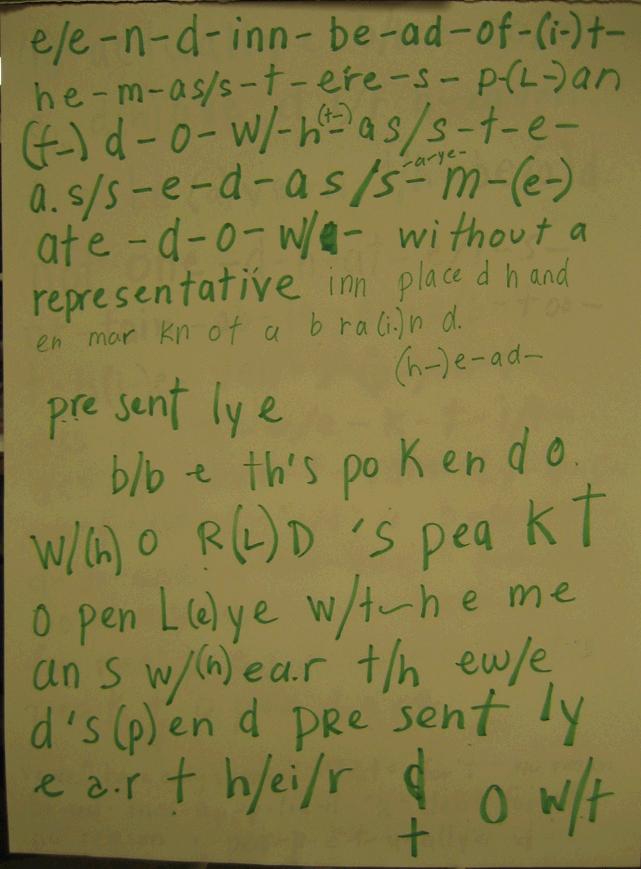 e/e-n-d-inn-be-ad-of-(i-)t-
he-m-as/s-t-ere-s-p-(L-)an
(f-)d-o-w/-h(t-)-as/s-t-e-
a.s/s-e-d-as/s-a-rye-m-(e-)
ate-d-o-w/a- without a
representative inn place d h and
en mar kn ot a b ra(i.)n d.
(h-)e-ad-
pre sent ly e
b/b e th's po K en d o.
W/(h) O R(L)D 's pea K T
o pen L(e)ye w/t~h e me
an s w/(h) ea.r t/h ew/e
d's(p)en d PRe sent ly
e a.r t h/ei/r d O w/t
t